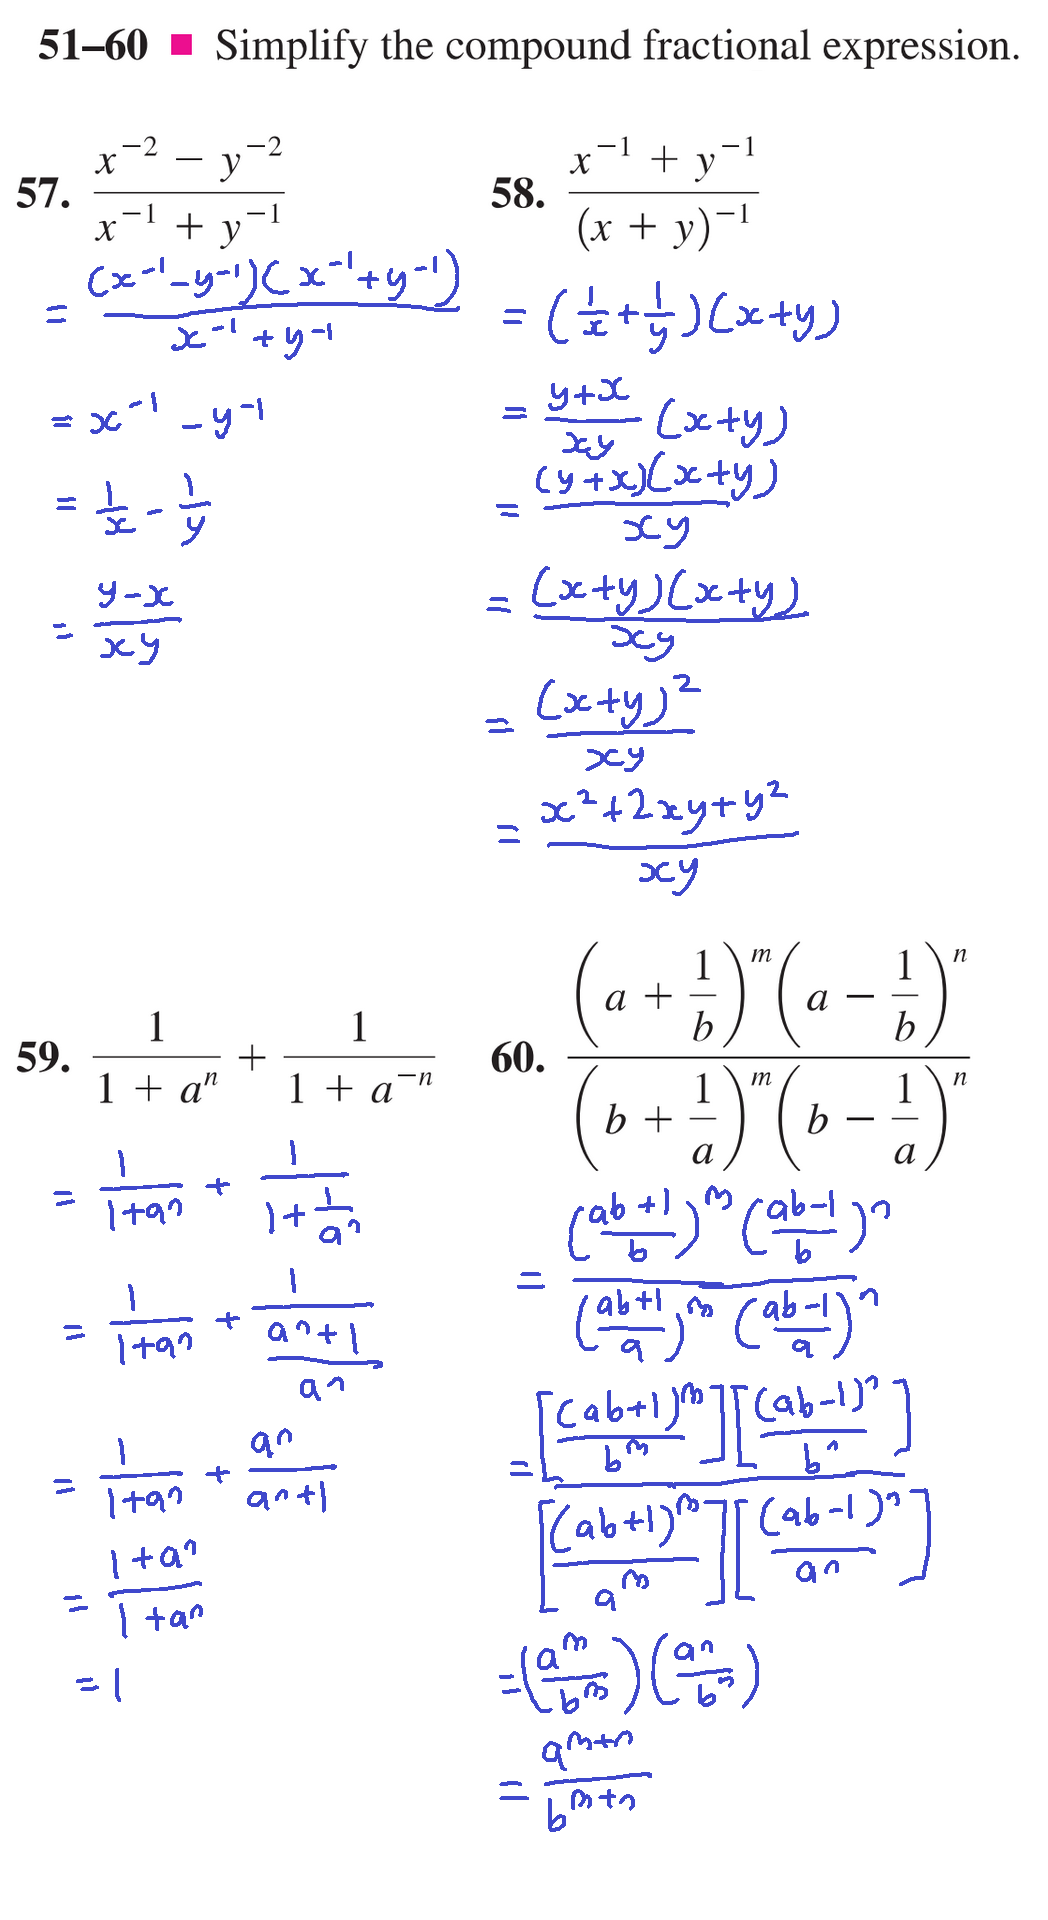 51–60 ■ Simplify the compound fractional expression.
57. \frac{x^{-2} - y^{-2}}{x^{-1} + y^{-1}}
= \frac{(x^{-1} - y^{-1})(x^{-1} + y^{-1})}{x^{-1} + y^{-1}}
= x^{-1} - y^{-1}
= \frac{1}{x} - \frac{1}{y}
= \frac{y - x}{xy}
58. \frac{x^{-1} + y^{-1}}{(x + y)^{-1}}
= (\frac{1}{x} + \frac{1}{y})(x + y)
= \frac{y + x}{xy} (x + y)
= \frac{(y + x)(x + y)}{xy}
= \frac{(x + y)(x + y)}{xy}
= \frac{(x + y)^2}{xy}
= \frac{x^2 + 2xy + y^2}{xy}
59. \frac{1}{1 + a^n} + \frac{1}{1 + a^{-n}}
= \frac{1}{1 + a^n} + \frac{1}{1 + \frac{1}{a^n}}
= \frac{1}{1 + a^n} + \frac{1}{\frac{a^n + 1}{a^n}}
= \frac{1}{1 + a^n} + \frac{a^n}{a^n + 1}
= \frac{1 + a^n}{1 + a^n}
= 1
60. \frac{(a + \frac{1}{b})^m (a - \frac{1}{b})^n}{(b + \frac{1}{a})^m (b - \frac{1}{a})^n}
= \frac{(\frac{ab + 1}{b})^m (\frac{ab - 1}{b})^n}{(\frac{ab + 1}{a})^m (\frac{ab - 1}{a})^n}
= \frac{[\frac{(ab + 1)^m}{b^m}][\frac{(ab - 1)^n}{b^n}]}{[\frac{(ab + 1)^m}{a^m}][\frac{(ab - 1)^n}{a^n}]}
= (\frac{a^m}{b^m})(\frac{a^n}{b^n})
= \frac{a^{m+n}}{b^{m+n}}